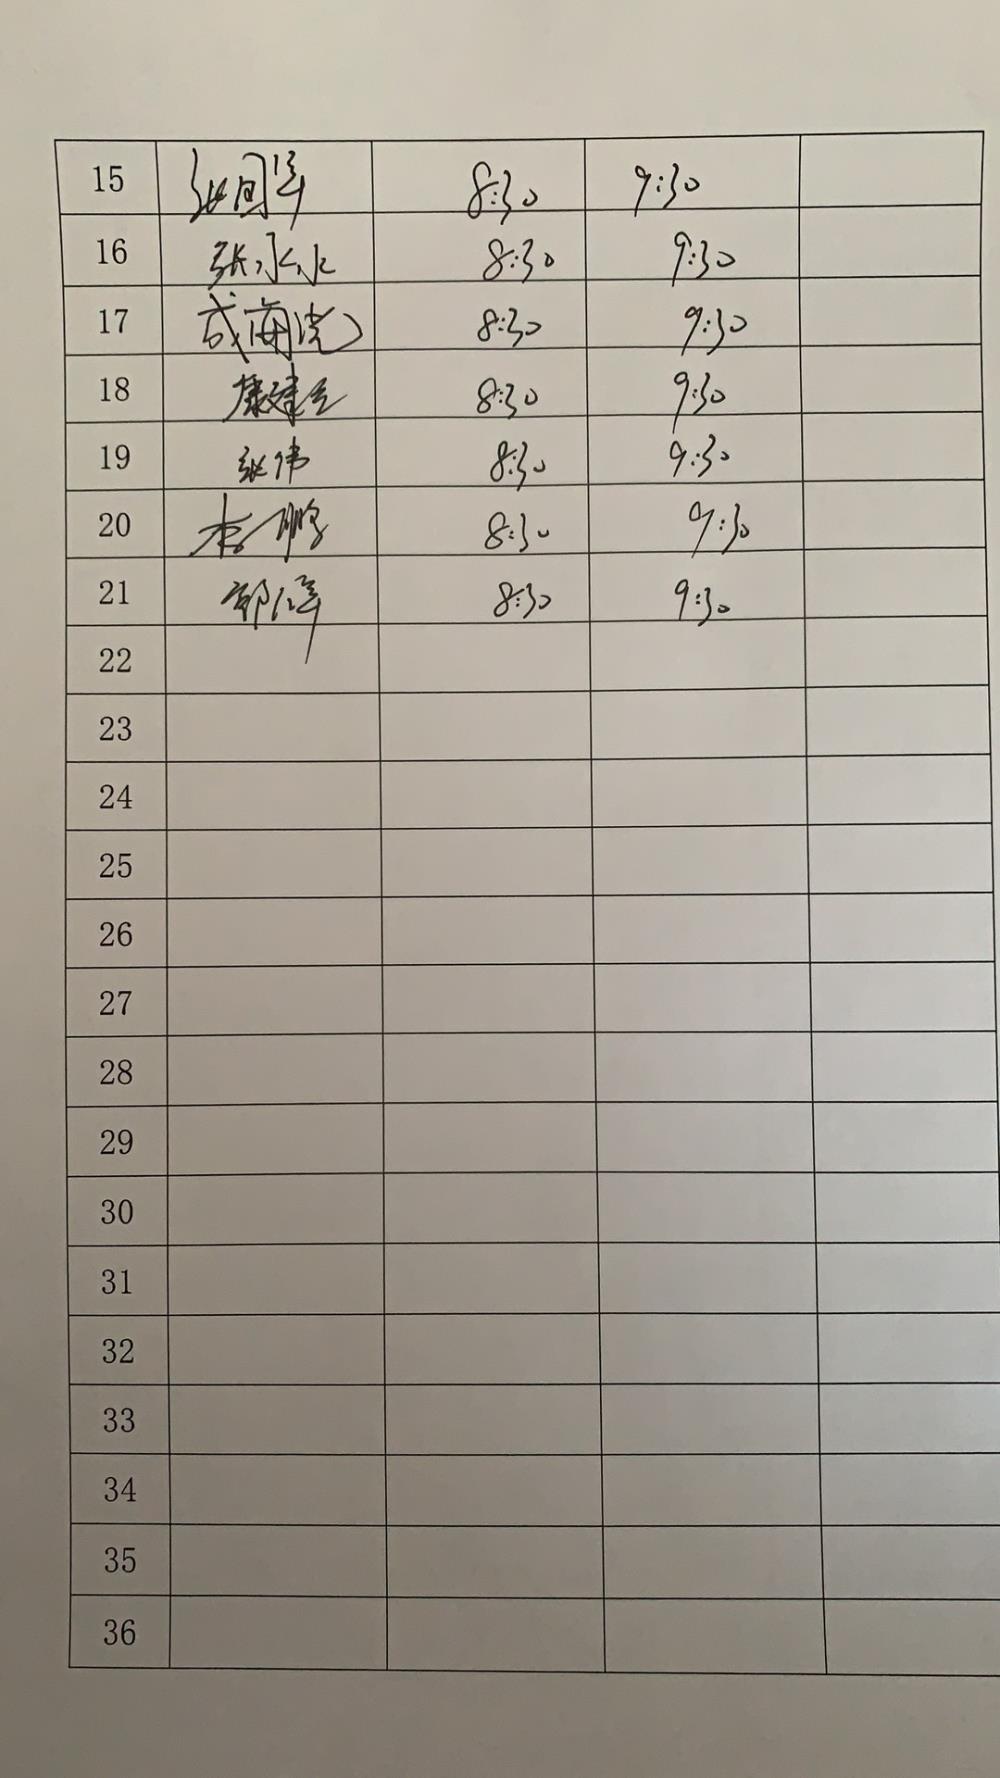 15 张国 8:30 9:30
16 张永水 8:30 9:30
17 成海 8:30 9:30
18 康建 8:30 9:30
19 张伟 8:30 9:30
20 李鹏 8:30 9:30
21 郭 8:30 9:30
22
23
24
25
26
27
28
29
30
31
32
33
34
35
36